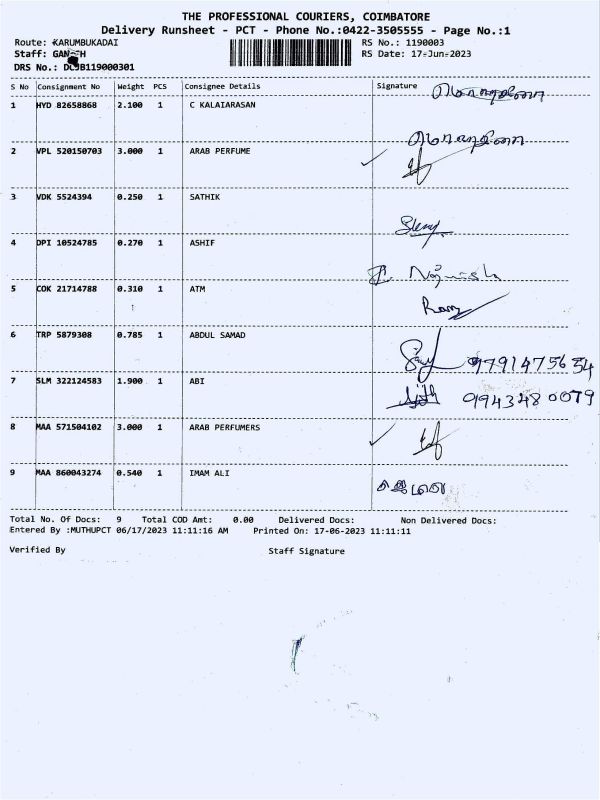 THE PROFESSIONAL COURIERS, COIMBATORE
Delivery Runsheet - PCT - Phone No.:0422-3505555 - Page No.:1
Route: KARUMBUKADAI RS No.: 1190003
Staff: RS Date: 17-Jun-2023
DRS No.:
S No Consignment No Weight PCS Consignee Details Signature
1 HYD 82658868 2.100 1 C KALAIARASAN
2 VPL 520150703 3.000 1 ARAB PERFUME
3 VDK 5524394 0.250 1 SATHIK
4 DPI 10524785 0.270 1 ASHIF
5 COK 21714788 0.310 1 ATM
6 TRP 5879308 0.785 1 ABDUL SAMAD
9791475654
7 SLM 322124583 1.900 1 ABI 9943480079
8 MAA 571504102 3.000 1 ARAB PERFUMERS
9 MAA 860043274 0.540 1 IMAM ALI
Total No. Of Docs: 9 Total COD Amt: 0.00 Delivered Docs: Non Delivered Docs:
Entered By :MUTHUPCT 06/17/2023 11:11:16 AM Printed On: 17-06-2023 11:11:11
Verified By Staff Signature